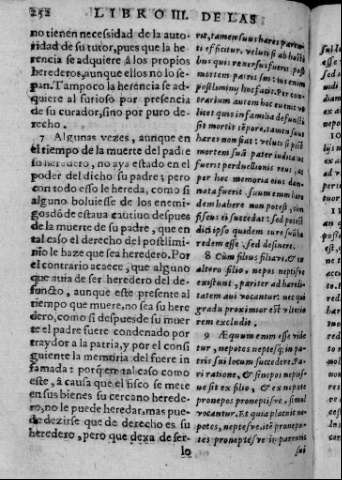 252 LIBRO III. DE LAS
no tienen necessidad de la auto-
ridad de su tutor, pues que la he-
rencia se adquiere à los propios
herederos, aunque ellos no lo se-
pan. Tampoco la herencia se ad-
quiere al furioso par presencia
de su curador, sino por puro de-
recho.
7 Algunas vezes, aunque en
el tiempo de la muerte del padre
su heredero, no aya estado en el
poder del dicho su padre; pero
con todo esso le hereda, como si
alguno boluiesse de los enemi-
gos dõde estaua cautiuo despues
de la muerte de su padre, que en
tal caso el derecho del postlimi-
nio le haze que sea heredero. Por
el contrario acaece, que alguno
que auia de ser heredero del de-
functo, aunque esté presente al
tiempo que muere, no sea su here
dero, como si despues de su muer
te el padre fuere condenado por
traydor a la patria, y por el consi
guiente la memoria del fuere in
famada: porque en tal caso como
este, à causa que el fisco se mete
en sus bienes su cercano herede-
ro, no le puede heredar, mas pue-
de dezirse que de derecho es su
heredero, pero que dexa de ser-
lo
rit, tamen suus hares paren-
ti efficitur. veluti si ab hosti
bus quis reuersus fuerit post
mortem patris sui: ius enim
postliminij hoc facit. Per con-
trarium autem hoc euenit vt
licet quis in familia defuncti
sit mortis tẽpore, tamen suus
hares non fiat: veluti si post
mortem suã pater iudicatus
fuerit perduellionis reus, ac
per hoc memoria eius dam-
nata fuerit. suum enim hare
dem habere non potest, cùm
fiscus ei succedat: sed potest
dici ipso quidem iure suũ ha
redem esse, sed desinere.
8 Cùm filius filiave, & ex
altero filio, nepos neptisve
existunt, pariter ad haredi-
tatem aui vocantur: nec qui
gradu proximior est vlterio
rem excludit.
9 Æquum enim esse vide
tur, nepotes neptesq; in pa-
tris sui locum succedere. Pa-
ri ratione, & si nepos nepos-
ve sit ex filio, & ex nepote
pronepos proneptisve, simul
vocantur. Et quia placuit ne-
potes, neptesve, itẽ pronepo-
tes proneptesve in parentis
sui